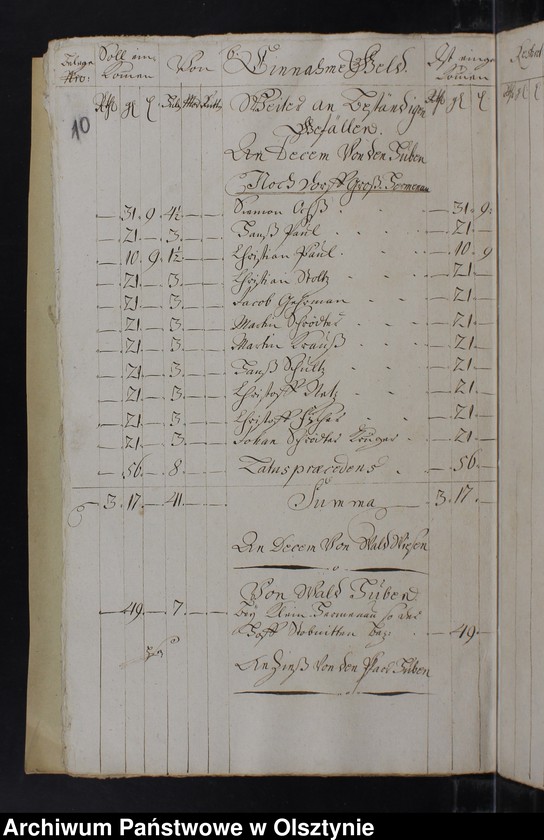 Soll ein= Von 6. Einnahme Geld. Ist einge
Nro: komen komen
10
Rthl gl Rthl gl
Weiter an Beständigen
Gefällen.
An Decem Von den Huben
Noch Dorff Groß Hermenau
— 31. 9. 4½ — — Simon — 31. 9.
— 21. — 3. — — Hanß Paul — 21. —
— 10. 9. 1½ — — Christian Paul — 10. 9
— 21. — 3. — — Christian Stoltz — 21. —
— 21. — 3. — — Jacob Gehrman — 21. —
— 21. — 3. — — Martin Schrödter — 21. —
— 21. — 3. — — Martin Krauß — 21. —
— 21. — 3. — — Hanß Schultz — 21. —
— 21. — 3. — — Christoff — 21. —
— 21. — 3. — — Christoff Fischer — 21. —
— 21. — 3. — — Johan Schrödter Krüger — 21. —
— 56. — 8. — — Latus praecedens — 56. —
3. 17. — 41. — — Summa 3. 17. —
An Decem Von Wald Wiesen
o
Von Wald Huben
— 49. — 7. — — Bey Klein Hermenau so der
Hoff Stobnitten — 49. —
An Zinß Von den Huben
Archiwum Państwowe w Olsztynie